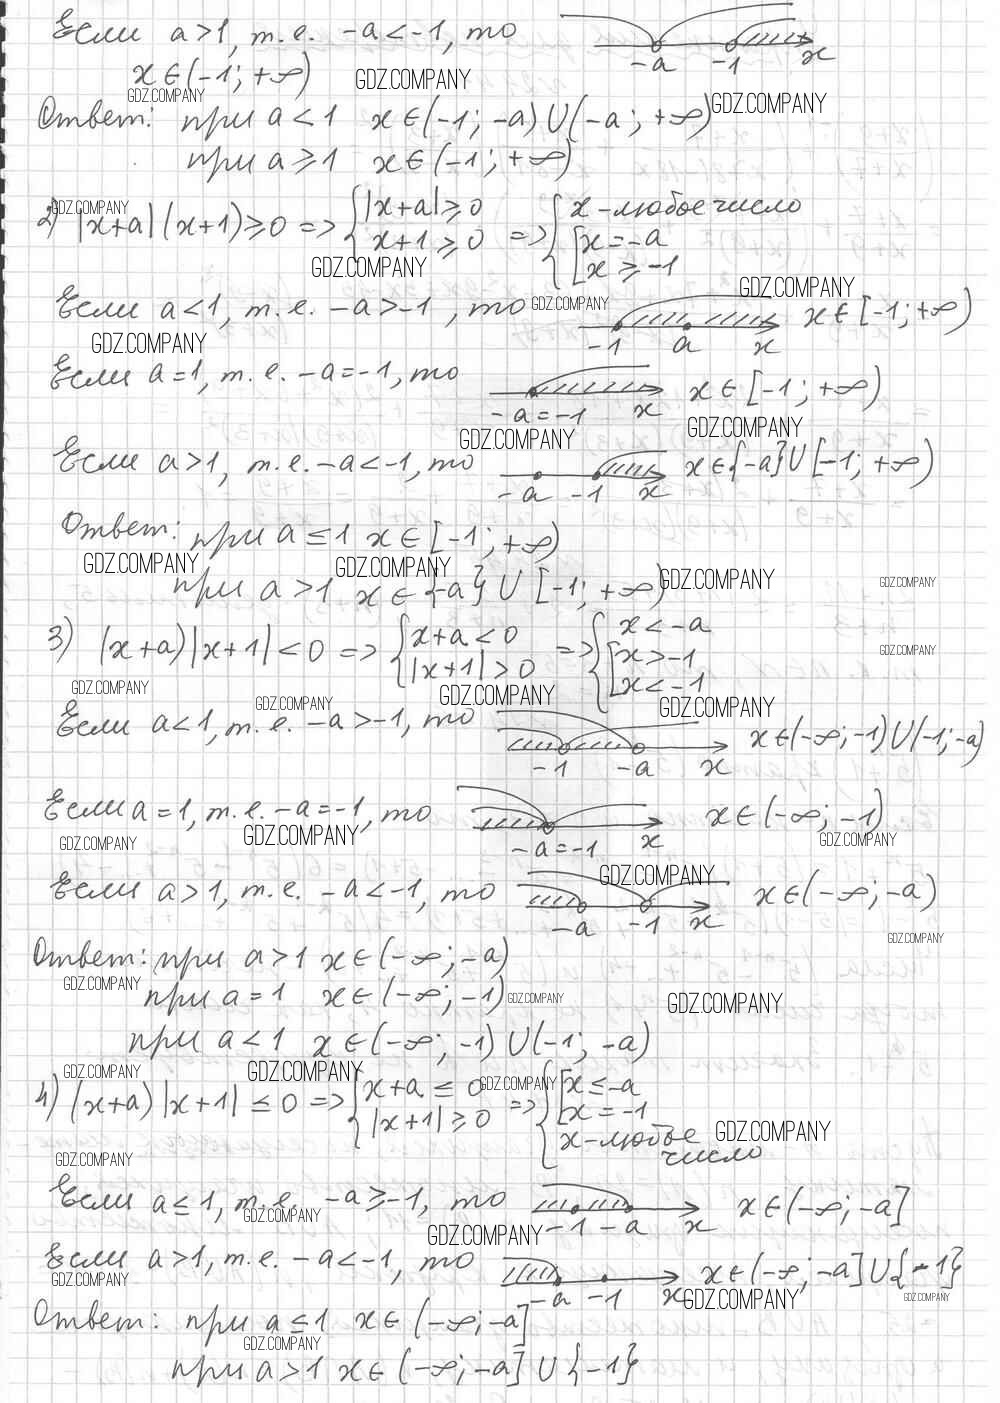 Если a>1, т.е. -a<-1, то
-a -1 x
x∈(-1; +∞)
GDZ.COMPANY
GDZ.COMPANY
GDZ.COMPANY
Ответ: при a<1 x∈(-1; -a)∪(-a; +∞)
при a≥1 x∈(-1; +∞)
GDZ.COMPANY
2) |x+a|(x+1)≥0 => { |x+a|≥0 => { x-любое число
x+1≥0 [ x=-a
x≥-1
GDZ.COMPANY
GDZ.COMPANY
Если a<1, т.е. -a>-1, то x∈[-1; +∞)
GDZ.COMPANY
-1 a x
GDZ.COMPANY
Если a=1, т.е. -a=-1, то x∈[-1; +∞)
-a=-1 x
GDZ.COMPANY
GDZ.COMPANY
Если a>1, т.е. -a<-1, то x∈{-a}∪[-1; +∞)
-a -1 x
Ответ: при a≤1 x∈[-1; +∞)
GDZ.COMPANY
GDZ.COMPANY
GDZ.COMPANY
GDZ.COMPANY
при a>1 x∈{-a}∪[-1; +∞)
3) (x+a)|x+1|<0 => { x+a<0 => { x<-a
|x+1|>0 [ x>-1
x<-1
GDZ.COMPANY
GDZ.COMPANY
GDZ.COMPANY
GDZ.COMPANY
GDZ.COMPANY
Если a<1, т.е. -a>-1, то x∈(-∞; -1)∪(-1; -a)
-1 -a x
Если a=1, т.е. -a=-1, то x∈(-∞; -1)
GDZ.COMPANY
GDZ.COMPANY
GDZ.COMPANY
-a=-1 x
GDZ.COMPANY
Если a>1, т.е. -a<-1, то x∈(-∞; -a)
-a -1 x
GDZ.COMPANY
Ответ: при a>1 x∈(-∞; -a)
GDZ.COMPANY
при a=1 x∈(-∞; -1)
GDZ.COMPANY
GDZ.COMPANY
при a<1 x∈(-∞; -1)∪(-1; -a)
GDZ.COMPANY
GDZ.COMPANY
GDZ.COMPANY
4) (x+a)|x+1|≤0 => { x+a≤0 => { [ x≤-a
|x+1|≥0 x=-1
x-любое
число
GDZ.COMPANY
GDZ.COMPANY
Если a≤1, т.е. -a≥-1, то x∈(-∞; -a]
GDZ.COMPANY
-1 -a x
GDZ.COMPANY
Если a>1, т.е. -a<-1, то x∈(-∞; -a]∪{-1}
GDZ.COMPANY
-a -1 x
GDZ.COMPANY
GDZ.COMPANY
Ответ: при a≤1 x∈(-∞; -a]
GDZ.COMPANY
при a>1 x∈(-∞; -a]∪{-1}